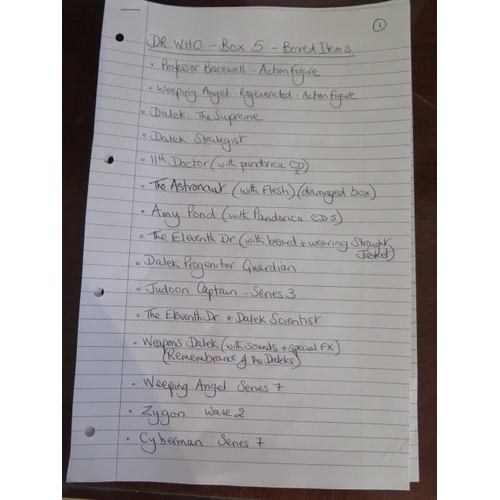 1
DR WHO - Box 5 - Boxed Items
• Professor Bracewell - Action Figure
• Weeping Angel Regenerated - Action Figure
• Dalek The Supreme
• Dalek Strategist
• 11th Doctor (with pandorica CD)
• The Astronaut (with Flesh) (damaged box)
• Amy Pond (with Pandorica CD5)
• The Eleventh Dr (with beard + wearing Straight
Jacket)
• Dalek Progenitor Guardian
• Judoon Captain - Series 3
• The Eleventh Dr + Dalek Scientist
• Weapons Dalek (with sounds + special FX)
(Remembrance of the Daleks)
• Weeping Angel Series 7
• Zygon Wave 2
• Cyberman Series 7